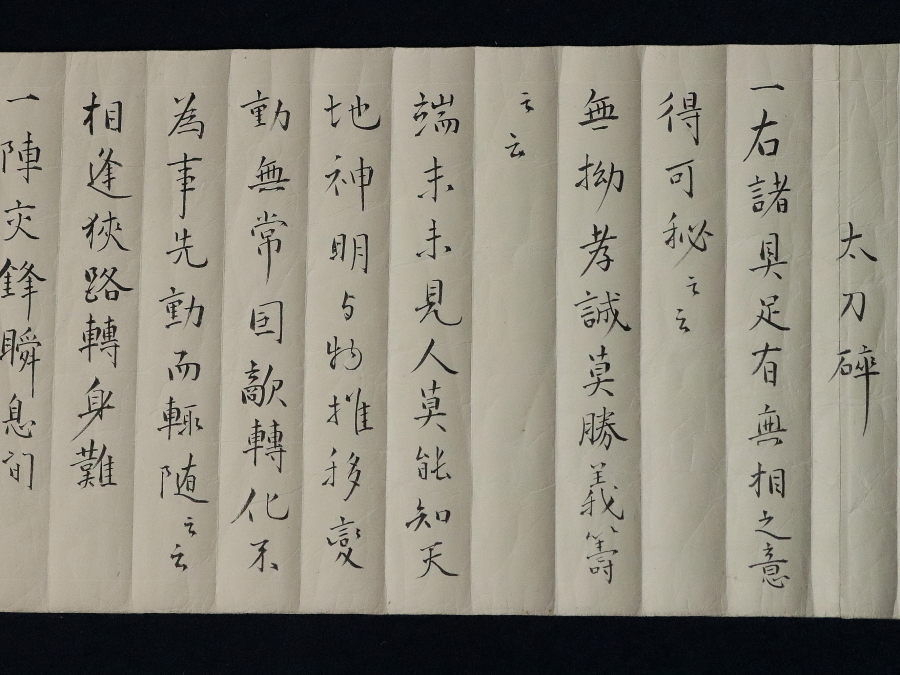 太刀碎
一右諸具足有無相之意
得可秘云云
無拗孝誠莫勝義籌
云云
端末未見人莫能知天
地神明与物推移變
動無常因敵轉化不
為事先動而輙随云云
相逢狹路轉身難
一陣交鋒瞬息